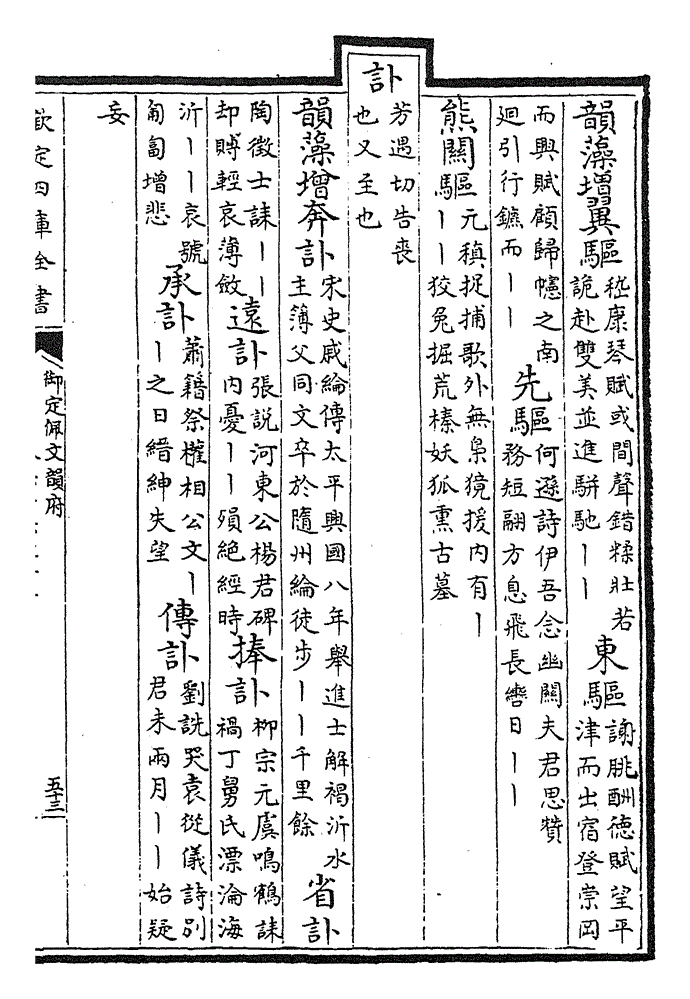 韻藻增翼驅
嵇康琴賦或間聲錯糅壯若
詭赴雙美並進駢馳丨丨
東驅
謝朓酬德賦望平
津而出宿登崇岡
而興賦顧歸幰之南
迴引行鑣而丨丨
先驅
何遜詩伊吾念幽關夫君思贊
務短翮方息飛長轡日丨丨
熊關驅
元稹捉捕歌外無梟獍援内有丨
丨丨狡兔掘荒榛妖狐熏古墓
訃
芳遇切告喪
也又至也
韻藻增奔訃
宋史戚綸傳太平興國八年舉進士解褐沂水
主簿父同文卒於隨州綸徒步丨丨千里餘
省訃
陶徵士誄丨丨
却賻輕哀薄斂
遠訃
張說河東公楊君碑
内憂丨丨殞絶經時
捧訃
柳宗元虞鳴鶴誄
禍丁舅氏漂淪海
沂丨丨哀號
匍匐增悲
承訃
蕭籍祭權相公文丨
丨之日縉紳失望
傳訃
劉詵哭袁從儀詩别
君未兩月丨丨始疑
妄
欽定四庫全書
御定佩文韻府
五十三